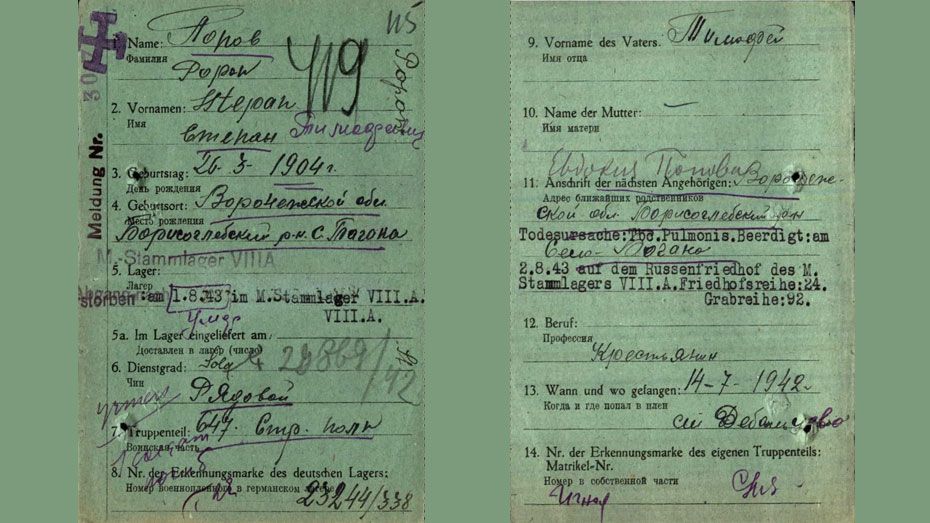 Meldung Nr.
1. Name: Поров
Фамилия
119
115
2. Vornamen: Stepan
Имя Степан Тимофеевич
3. Geburtstag: 26 3 1904 г.
День рождения
4. Geburtsort: Воронежской обл
Место рождения
Борисоглебский р-н. С.
M.-Stammlager VIIIA
5. Lager:
Лагерь
storben :am 1.8.43 im M.Stammlager VIII.A.
VIII.A.
умер
5a. Im Lager eingeliefert am:
Доставлен в лагерь (число)
6. Dienstgrad: Sold
Чин Рядовой
7. Truppenteil: 647. Стр. полк
Воинская часть
8. Nr. der Erkennungsmarke des deutschen Lagers:
Номер военнопленного в германском лагере
23244/338
9. Vorname des Vaters: Тимофей
Имя отца
10. Name der Mutter: —
Имя матери
Евдокия
11. Anschrift der nächsten Angehörigen: Воронеж-
Адрес ближайших родственников
ской обл. Борисоглебский
Todesursache:Tbc.Pulmonis.Beerdigt:am
Село
2.8.43 auf dem Russenfriedhof des M.
Stammlagers VIII.A.Friedhofsreihe:24.
Grabreihe:92.
12. Beruf:
Профессия
Крестьянин
13. Wann und wo gefangen: 14-7-1942
Когда и где попал в плен
14. Nr. der Erkennungsmarke des eigenen Truppenteils:
Matrikel-Nr.
Номер в собственной части